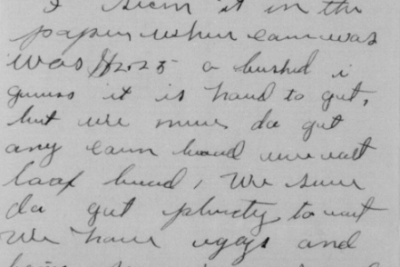 I seen it in the
paper where corn was
was $2.25 a bushel i
guess it is hard to get,
but we never do get
any corn bread we eat
loaf bread, We sure
do get plenty to eat
We have eggs and